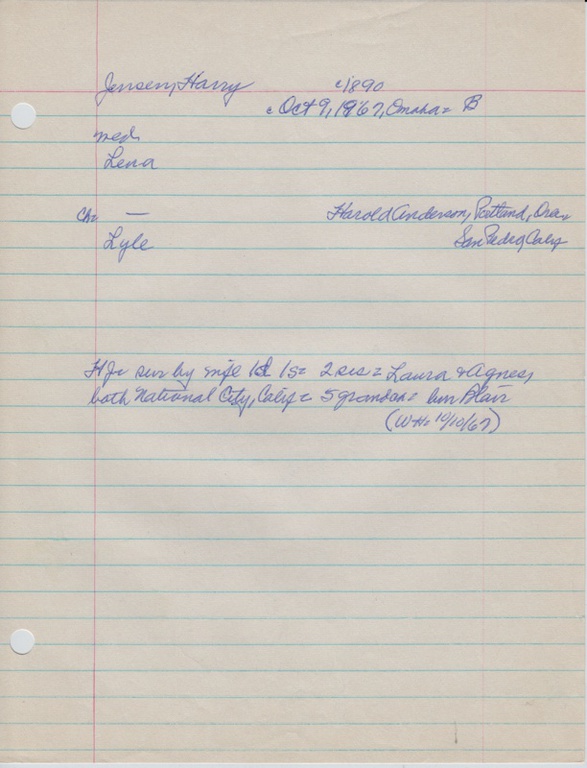 Jensen, Harry c1890
Oct 9, 1967, Omaha = B
med
Lena
Ch= — Harold Anderson, Portland, Ore=
Lyle San Pedro, Calif
HJ= sur by wife 1d 1s= 2 sis= Laura & Agnes,
both National City, Calif = 5 grandch= bur Blair
(WH= 10/10/67)